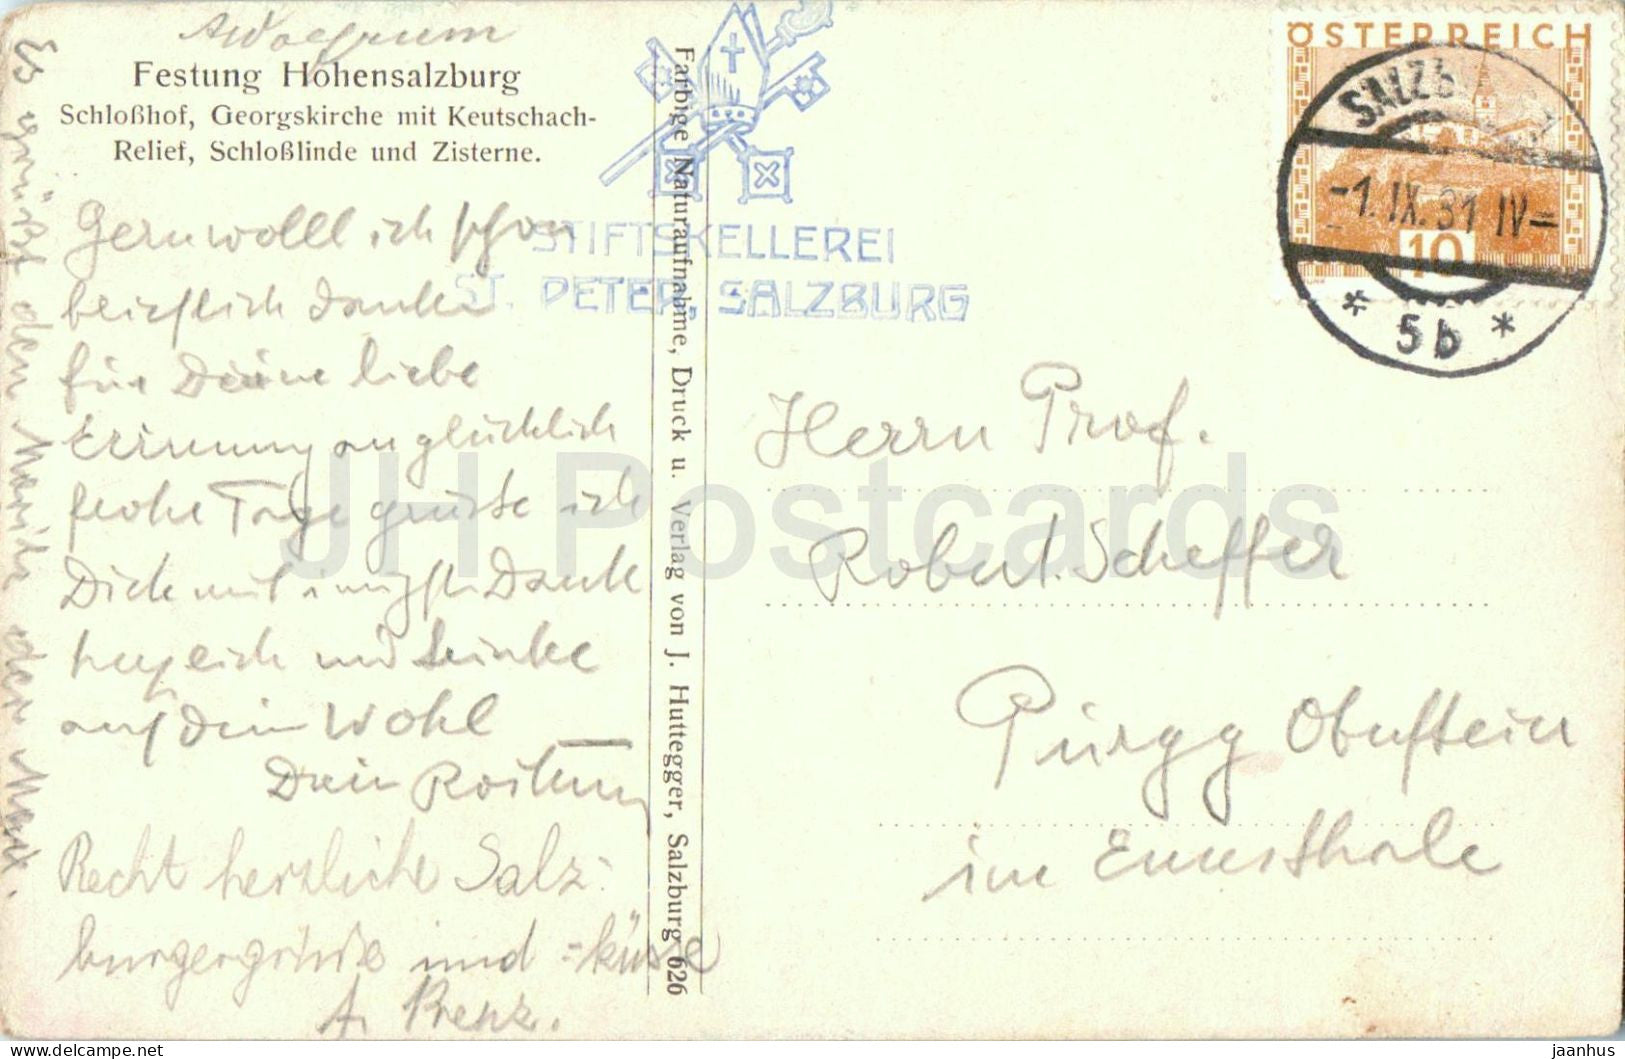 Festung Hohensalzburg
Schloßhof, Georgskirche mit Keutschach-
Relief, Schloßlinde und Zisterne.
Gern wolll ich schon
brieflich danke
für Deine liebe
Erinnerung an glücklich
frohe Tage grüsse ich
Dich mit innigst. Dank
herzlich und trinke
auf dein Wohl
Dein
Recht herzliche Salz-
burgergrüße und -küsse
A. Prenz.
Es grüßt den
Farbige Naturaufnahme, Druck u. Verlag von J. Huttegger, Salzburg 626
STIFTSKELLEREI
ST. PETER, SALZBURG
ÖSTERREICH
10
SALZBURG
-1.IX.31 IV-
* 5b *
Herrn Prof.
Robert Scheffer
Pürgg Obersteier
im Ennsthale
JH Postcards
delcampe.net
jaanhus